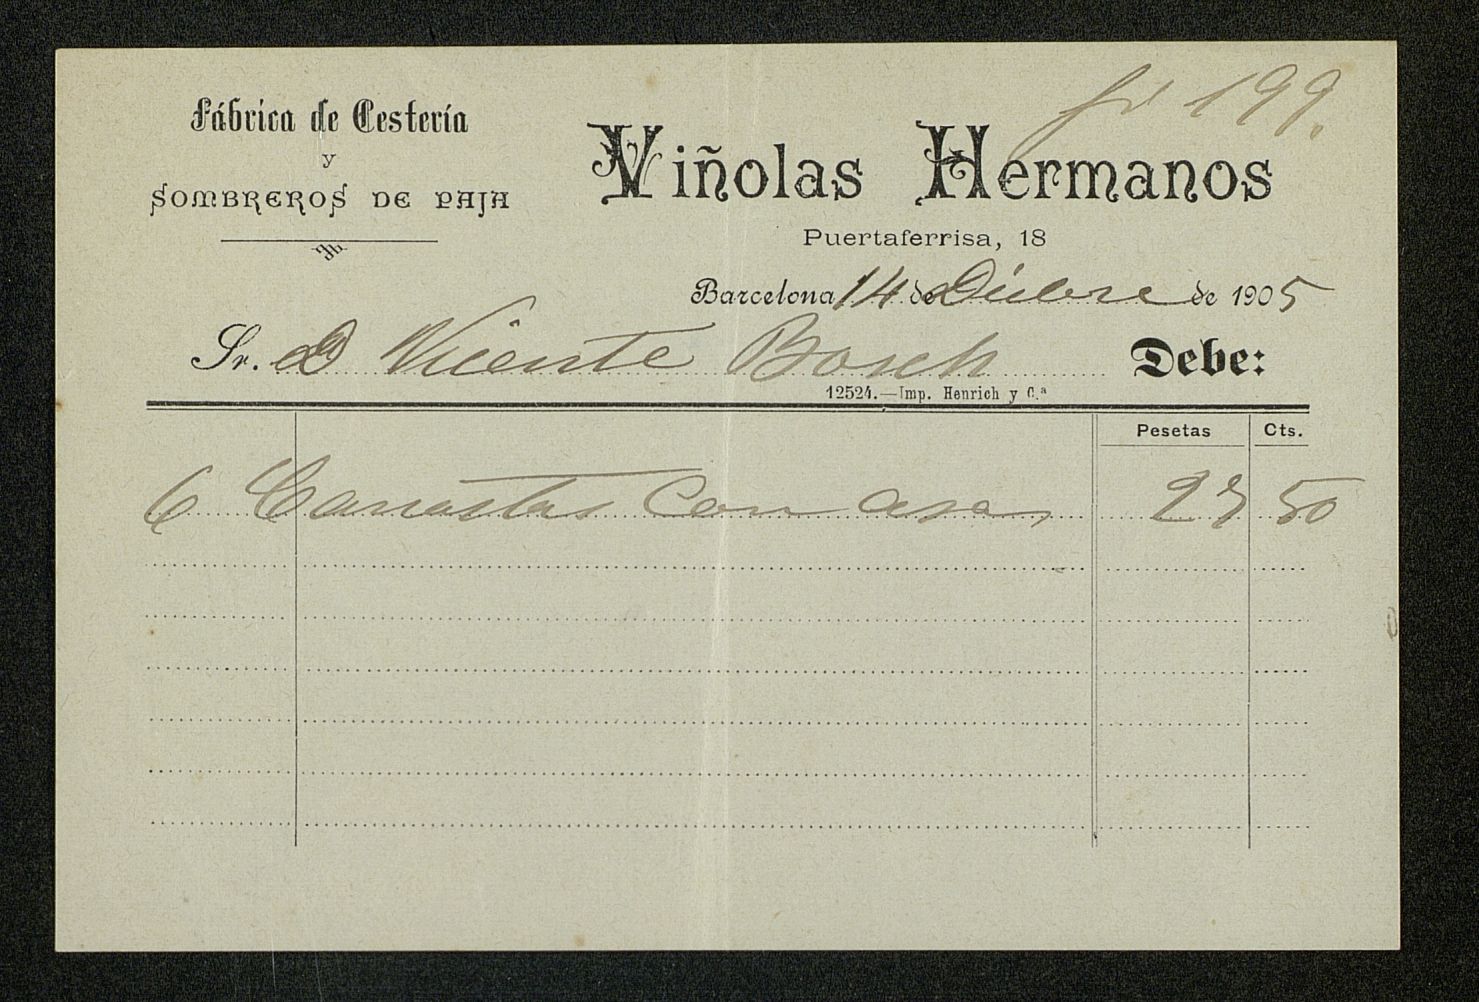 fº 199.
Fábrica de Cestería
y
SOMBREROS DE PAJA
Viñolas Hermanos
Puertaferrisa, 18
Barcelona 14 de Dicbre de 1905
Sr. D Vicente Bosch Debe:
12524.—Imp. Henrich y C.ª
Pesetas Cts.
6 Canastas con asas 50